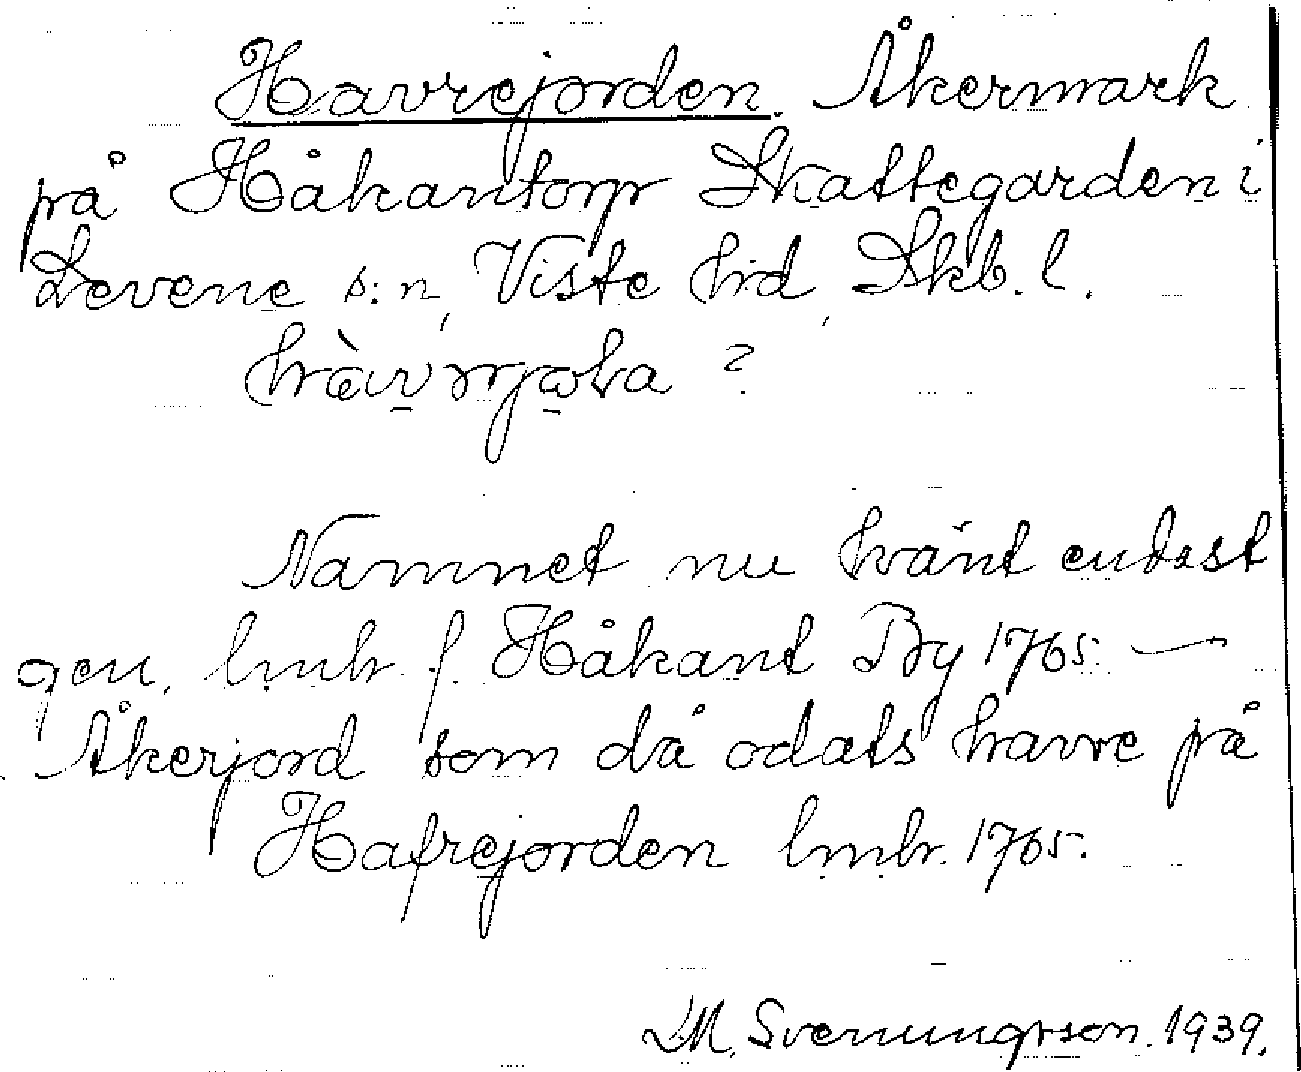 Havrejorden. Åkermark
på Håkantorp Skattegarden i
Levene s:n, Viste hd, Skb. l.
?
Namnet nu känt endast
gen. lmhr f. Håkant By 1765. —
Åkerjord som då odats havre på
Hafrejorden lmhr. 1765.
LM. Svenungsson. 1939.